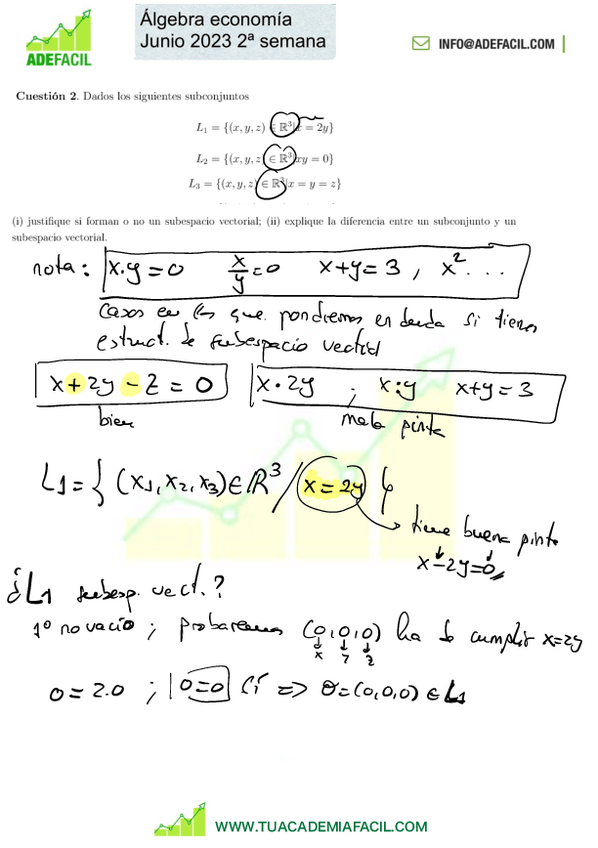 Álgebra economía
Junio 2023 2ª semana
ADEFACIL
INFO@ADEFACIL.COM
Cuestión 2. Dados los siguientes subconjuntos
L₁ = {(x, y, z) ∈ ℝ³|x = 2y}
L₂ = {(x, y, z) ∈ ℝ³|xy = 0}
L₃ = {(x, y, z) ∈ ℝ³|x = y = z}
(i) justifique si forman o no un subespacio vectorial; (ii) explique la diferencia entre un subconjunto y un
subespacio vectorial.
nota: x·y=0 x/y=0 x+y=3, x²...
casos en los que pondremos en duda si tienen
estruct. de subespacio vectrial
x+2y-z=0 x·2y ; x:y x+y=3
bien mala pinta
L1={(x₁,x₂,x₃)∈ℝ³/x=2y}
tiene buena pinta
x-2y=0
¿L1 subesp. vect.?
1º no vacío ; probaremos (0,0,0) ha de cumplir x=2y
x y z
0=2·0 ; 0=0 Sí => θ=(0,0,0)∈L1
WWW.TUACADEMIAFACIL.COM